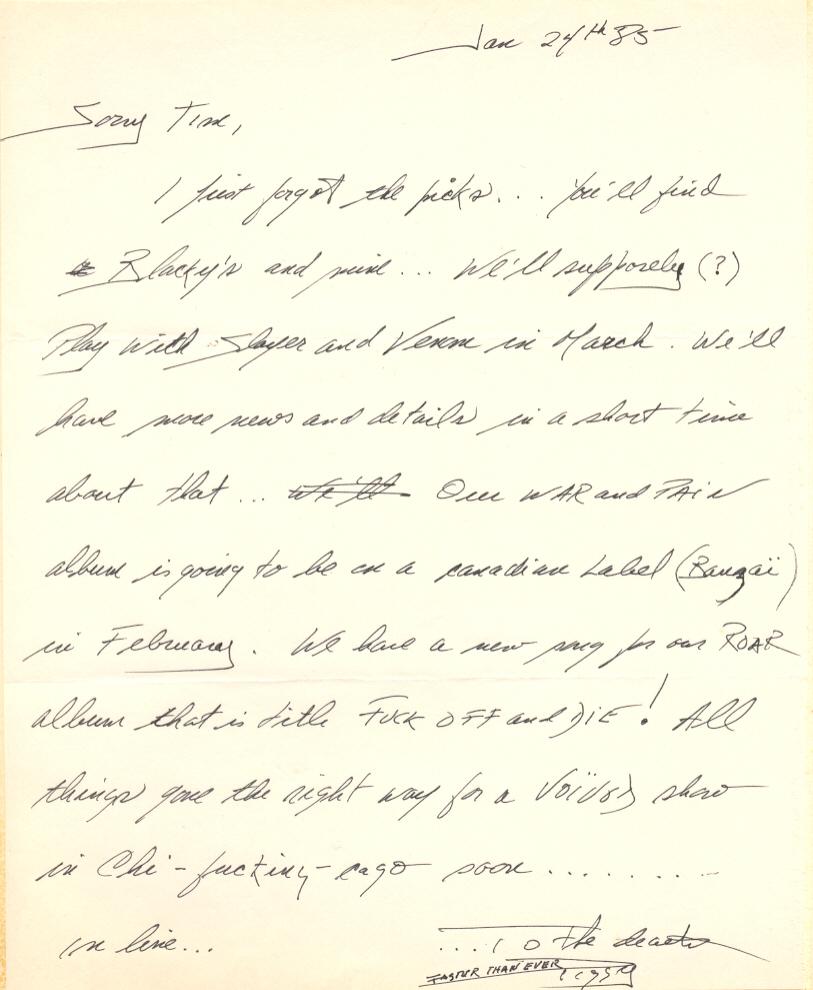 Jan 24th 85
Sorry Tim,
I just forgot the picks... You'll find
Blacky's and mine... We'll supposely (?)
Play with Slayer and Venom in March. We'll
have more news and details in a short time
about that... We'll Our WAR and PAiN
album is going to be on a canadian Label (Banzaï)
in February. We have a new song for our ROAR
album that is title FUCK OFF and DiE! All
things gone the right way for a VoïVoD show
in Chi-fucking-cago soon.........
in line... ....To the death
FASTER THAN EVER Piggy